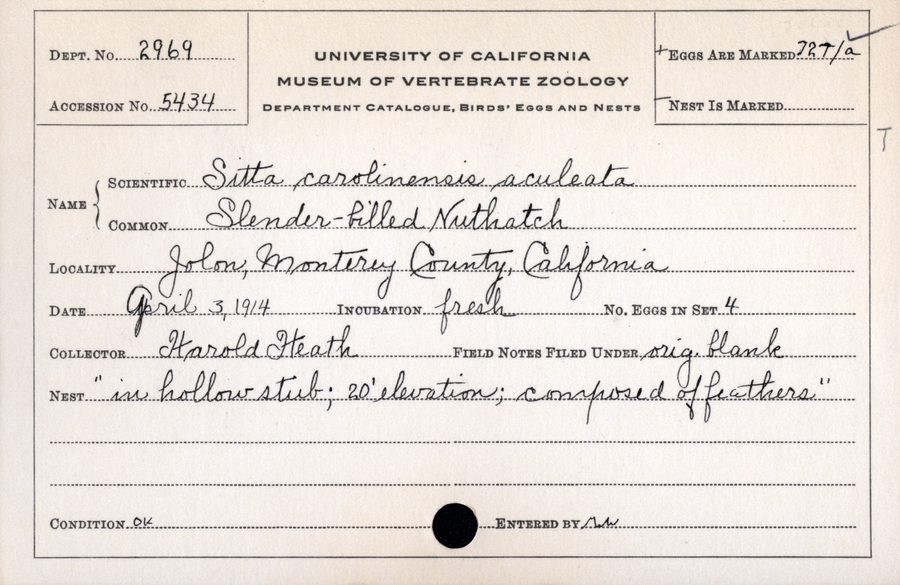 DEPT. No. 2969
ACCESSION No. 5434
UNIVERSITY OF CALIFORNIA
MUSEUM OF VERTEBRATE ZOOLOGY
DEPARTMENT CATALOGUE, BIRDS' EGGS AND NESTS
+ EGGS ARE MARKED 727/a
– NEST IS MARKED
T
NAME
SCIENTIFIC Sitta carolinensis aculeata
COMMON Slender-billed Nuthatch
LOCALITY Jolon, Monterey County, California
DATE April 3, 1914 INCUBATION fresh No. EGGS IN SET 4
COLLECTOR Harold Heath FIELD NOTES FILED UNDER orig. blank
NEST "in hollow stub; 20' elevation; composed of feathers"
CONDITION OK ENTERED BY